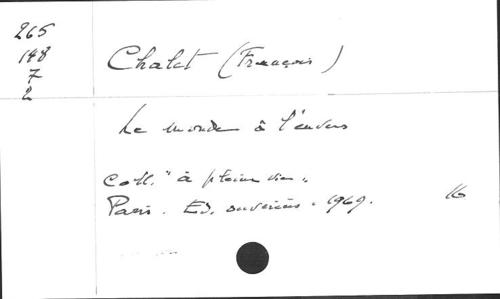 265
148
7
2
Chalet (François)
Le monde à l'envers
Coll. "à pleine vie".
Paris. Ed. ouvrières. 1969. 16